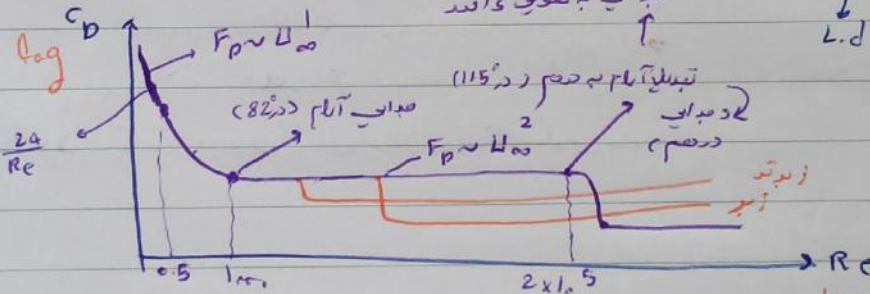 C_D
log
F_D ~ U_∞^1
L.d
24/Re
جدایی آرام (در 82°)
تبدیل آرام به درهم (در 115°)
و جدایی
درهم)
F_D ~ U_∞^2
زبرتر
زبر
0.5
1000
2×10^5
Re